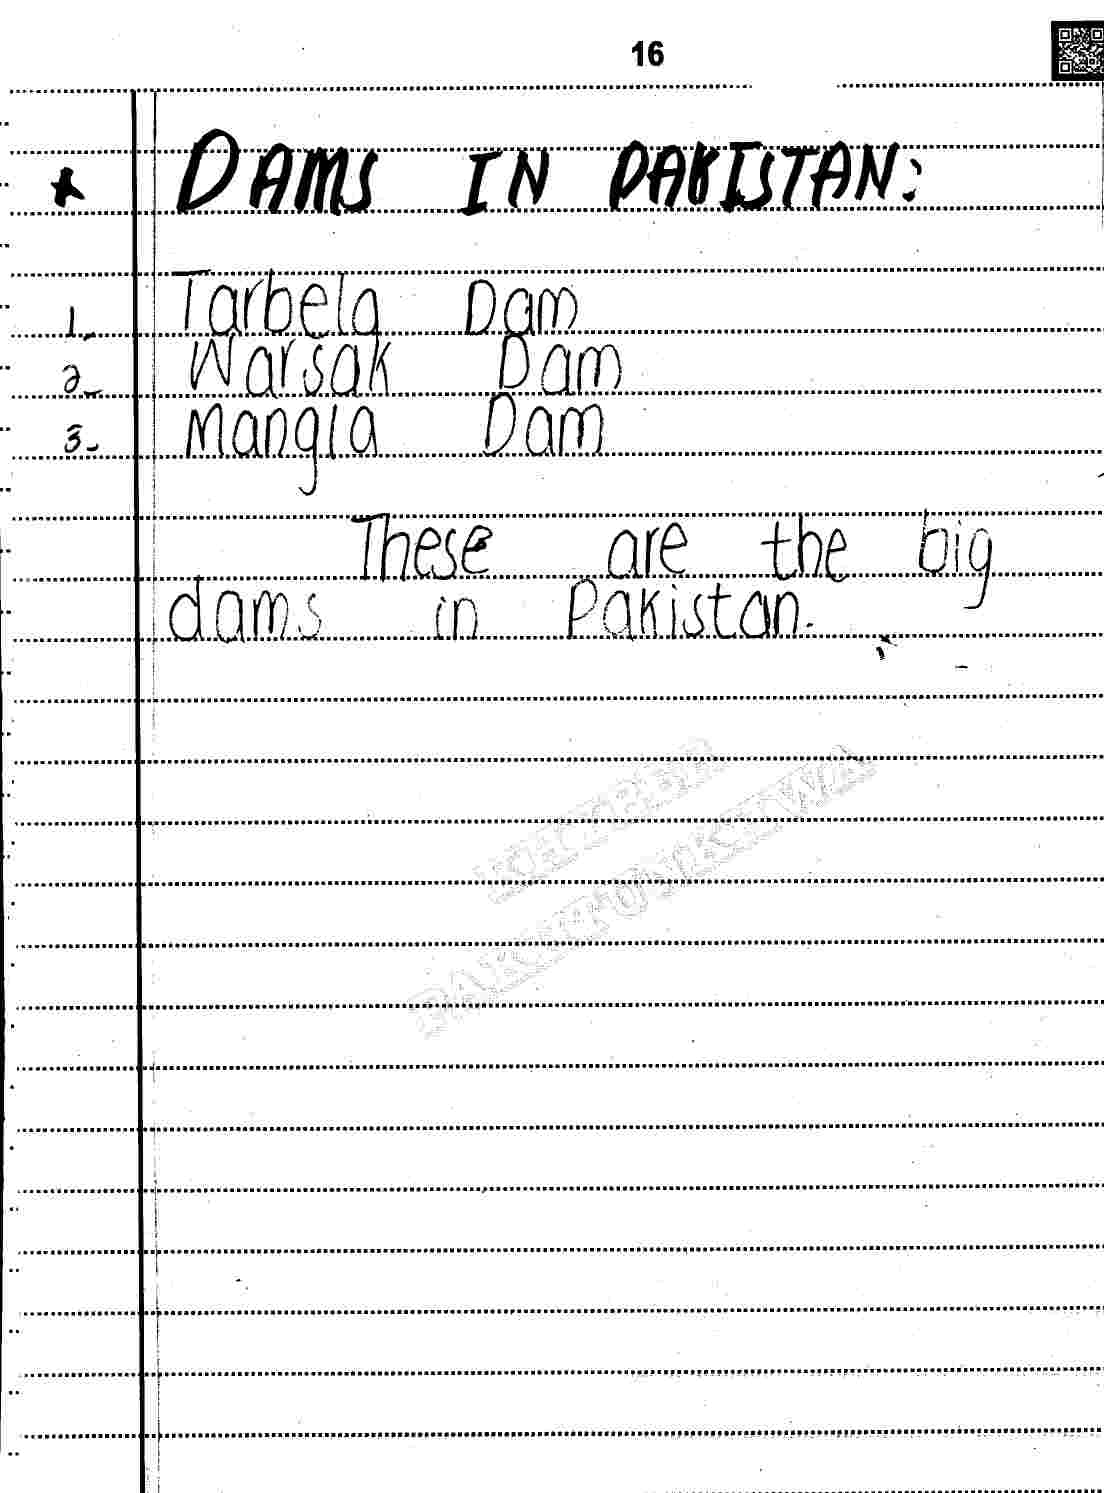 16
* DAMS IN PAKISTAN:
1. Tarbela Dam
2. Warsak Dam
3. Mangla Dam
These are the big
dams in Pakistan.
KHYBER
PAKHTUNKHWA